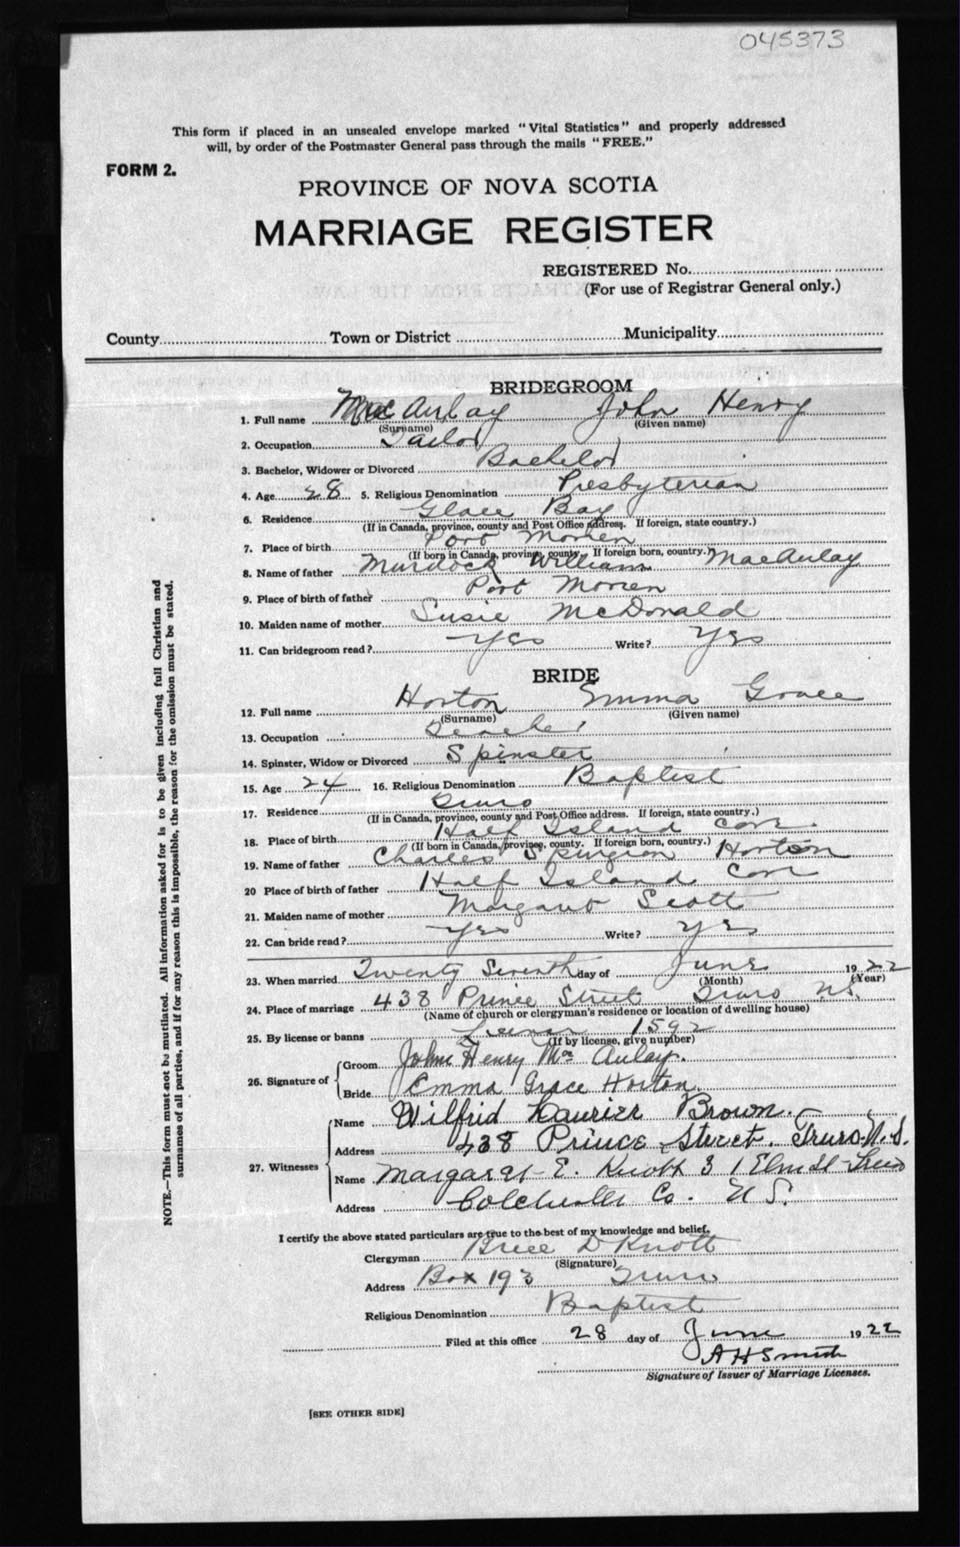 045373
This form if placed in an unsealed envelope marked "Vital Statistics" and properly addressed
will, by order of the Postmaster General pass through the mails "FREE."
FORM 2.
PROVINCE OF NOVA SCOTIA
MARRIAGE REGISTER
REGISTERED No.
(For use of Registrar General only.)
County Town or District Municipality
BRIDEGROOM
1. Full name MacAulay John Henry
(Surname) (Given name)
2. Occupation Tailor
3. Bachelor, Widower or Divorced Bachelor
4. Age 28 5. Religious Denomination Presbyterian
6. Residence Glace Bay
(If in Canada, province, county and Post Office address. If foreign, state country.)
7. Place of birth Port Morien
(If born in Canada, province, county. If foreign born, country.)
8. Name of father Murdock William MacAulay
9. Place of birth of father Port Morien
10. Maiden name of mother Susie McDonald
11. Can bridegroom read? Yes Write? Yes
BRIDE
12. Full name Horton Emma Grace
(Surname) (Given name)
13. Occupation Teacher
14. Spinster, Widow or Divorced Spinster
15. Age 24 16. Religious Denomination Baptist
17. Residence Truro
(If in Canada, province, county and Post Office address. If foreign, state country.)
18. Place of birth Half Island Cove
(If born in Canada, province, county. If foreign born, country.)
19. Name of father Charles Spurgeon Horton
20 Place of birth of father Half Island Cove
21. Maiden name of mother Margaret Scott
22. Can bride read? Yes Write? Yes
23. When married Twenty Seventh day of June 1922
(Month) (Year)
24. Place of marriage 438 Prince Street Truro N.S.
(Name of church or clergyman's residence or location of dwelling house)
25. By license or banns License 1592
(If by license, give number)
26. Signature of Groom John Henry McAulay.
Bride Emma Grace Horton.
27. Witnesses Name Wilfrid Laurier Brown.
Address 438 Prince Street. Truro. N.S.
Name Margaret E. Knott 31 Elm St Truro
Address Colchester Co. N.S.
I certify the above stated particulars are true to the best of my knowledge and belief.
Clergyman Brice D Knott
(Signature)
Address Box 193 Truro
Religious Denomination Baptist
Filed at this office 28 day of June 1922
A H Smith
Signature of Issuer of Marriage Licenses.
[SEE OTHER SIDE]
NOTE.—This form must not be mutilated. All information asked for is to be given including full Christian and
surnames of all parties, and if for any reason this is impossible, the reason for the omission must be stated.